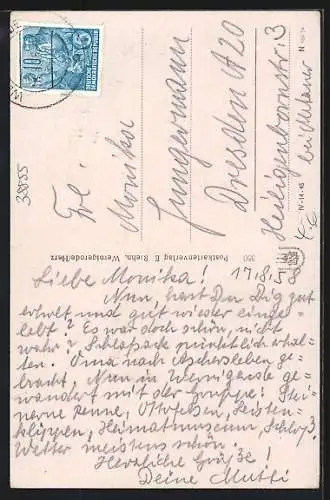 DEUTSCHE
DEMOKRATISCHE REPUBLIK
10
38855
Frl.
Monika
Jungermann
Dresden A 20
Heiligenbornstr. 13
IV-14-45
350 Postkartenverlag E. Riehn, Wernigerode/Harz
17.8.58
Liebe Monika!
Nun, hast Du Dig gut
erholt und gut wieder einge-
lebt? Es war doch schön, nicht
wahr? Schlafsack pünktlich erhal-
ten. Oma nach Aschersleben ge-
bracht. Nun in Wernigerode ge-
wandert mit der Gruppe! Stei-
nerne Renne, Ottofelsen, Leisten-
klippen, Heimatmuseum, Schloß.
Wetter meistens schön.
Herzliche Grüße!
Deine Mutti